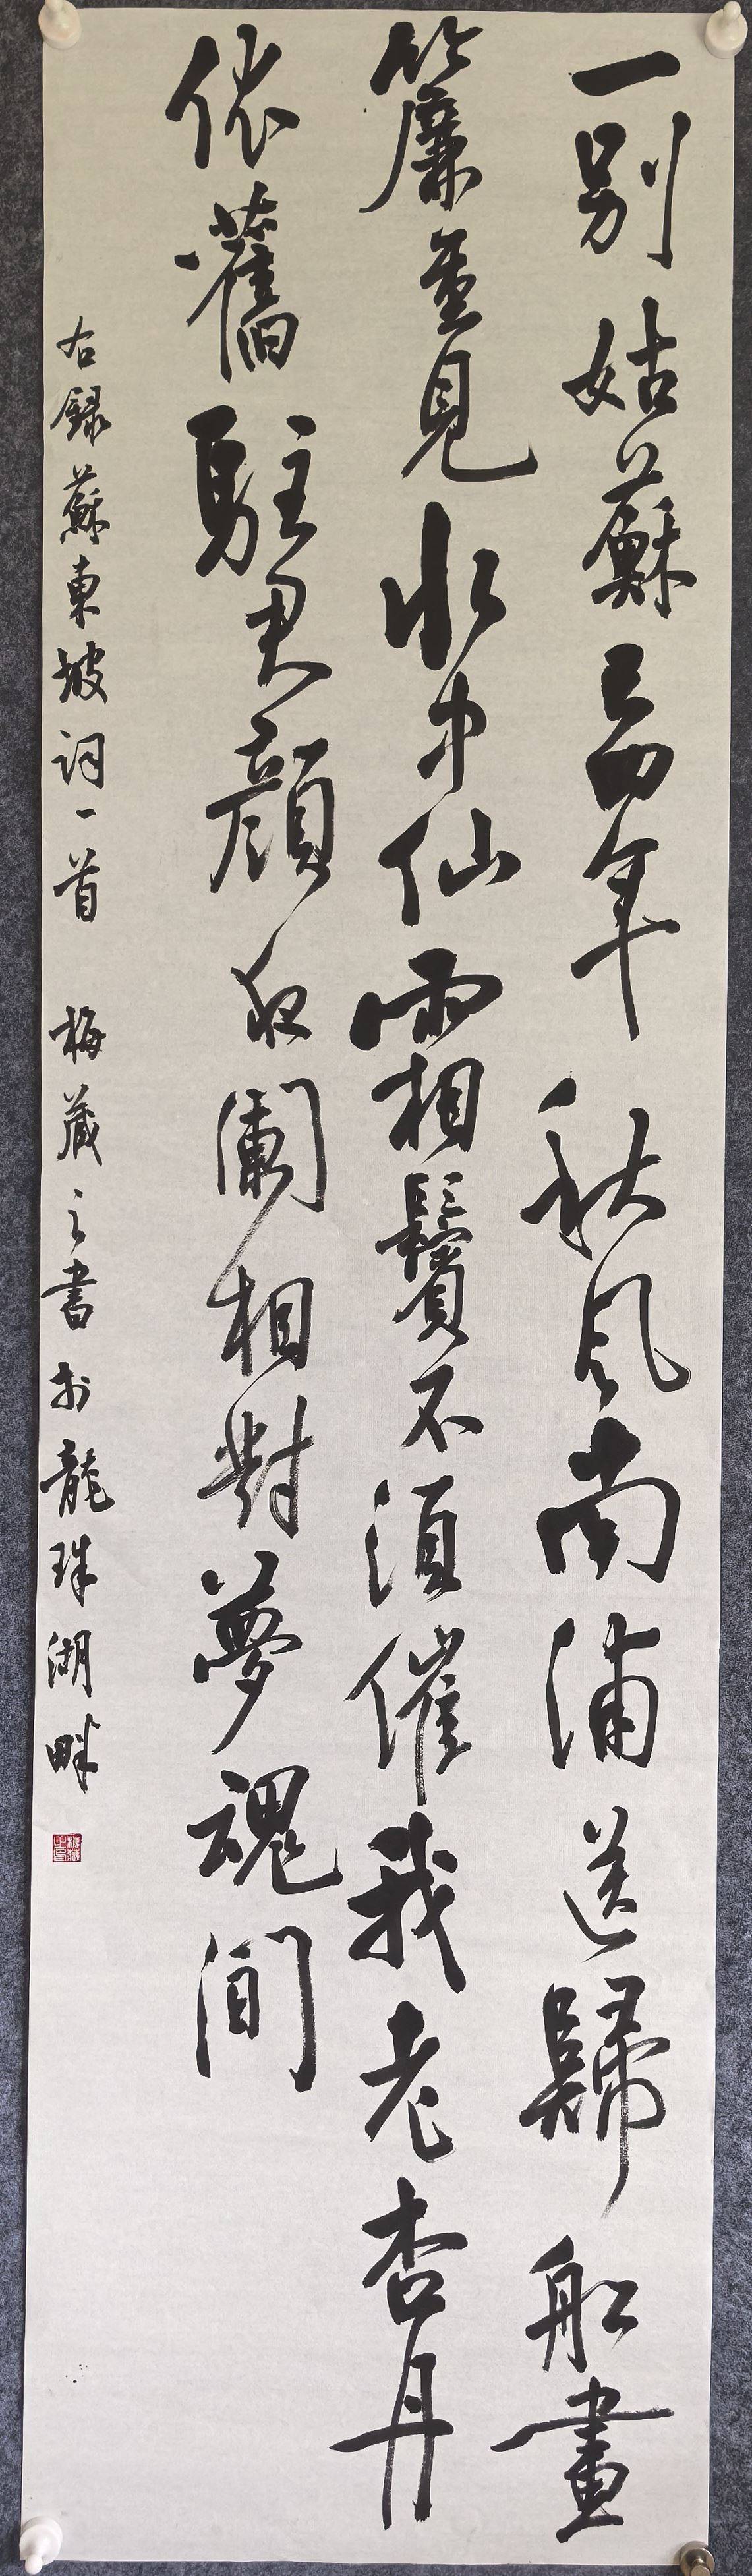 一别姑蘇已四年秋风南浦送歸船畫
簾重見水中仙霜相鬢不須催我老杏丹
依舊駐君顔夜闌相對夢魂间
右録蘇東坡词一首 梅藏之書於龍珠湖畔